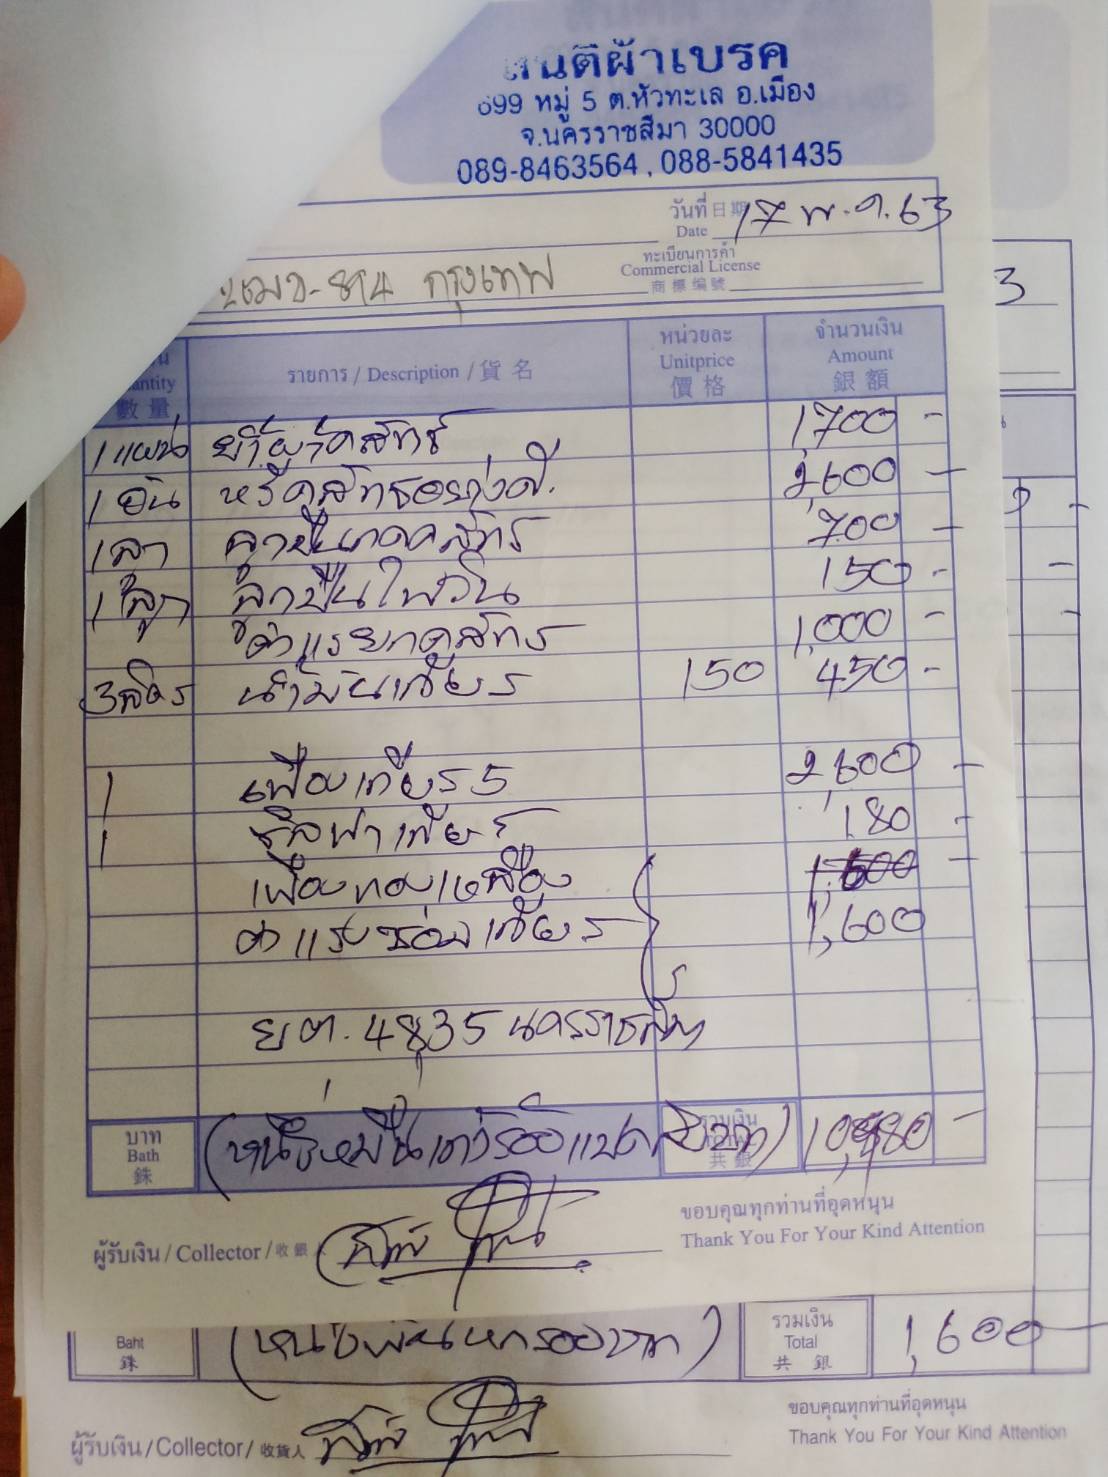 สันติผ้าเบรค
699 หมู่ 5 ต.หัวทะเล อ.เมือง
จ.นครราชสีมา 30000
089-8463564 , 088-5841435
วันที่ 日期 Date 17 พ.ค. 63
ทะเบียนการค้า
Commercial License
商標編號
894 กรุงเทพ
3
antity 數量
รายการ / Description / 貨名
หน่วยละ Unitprice 價格
จำนวนเงิน Amount 銀額
1 แผ่น 1700 -
1 อัน 2,600 -
700 -
1 ลูก ลูกปืนไฟวีล 150 -
ค่าแรงยกคลัทช์ 1,000 -
3 ลิตร น้ำมันเกียร์ 150 450 -
1 เฟืองเกียร์ 5 2,600 -
1 180 -
เฟืองทองเหลือง
ค่าแรงซ่อมเกียร์ 1,600
4835 นครราชสีมา
บาท Bath 銖
(หนึ่งหมื่นเก้าร้อยแปดสิบบาท) รวมเงิน 共銀 10,980 -
ผู้รับเงิน / Collector / 收銀人
ขอบคุณทุกท่านที่อุดหนุน
Thank You For Your Kind Attention
Baht 銖
(หนึ่งพันหกร้อยบาท) รวมเงิน Total 共銀 1,600 -
ผู้รับเงิน / Collector / 收貨人
ขอบคุณทุกท่านที่อุดหนุน
Thank You For Your Kind Attention